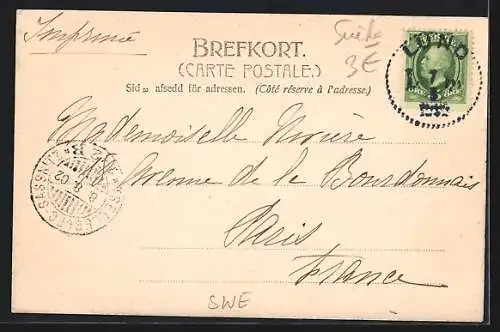 Imprimé
Suède
3€
BREFKORT.
(CARTE POSTALE.)
Sidan afsedd för adressen. (Côté réserve à l'adresse.)
LUND
Mademoiselle
Avenue de la Bourdonnais
Paris
France
SWE